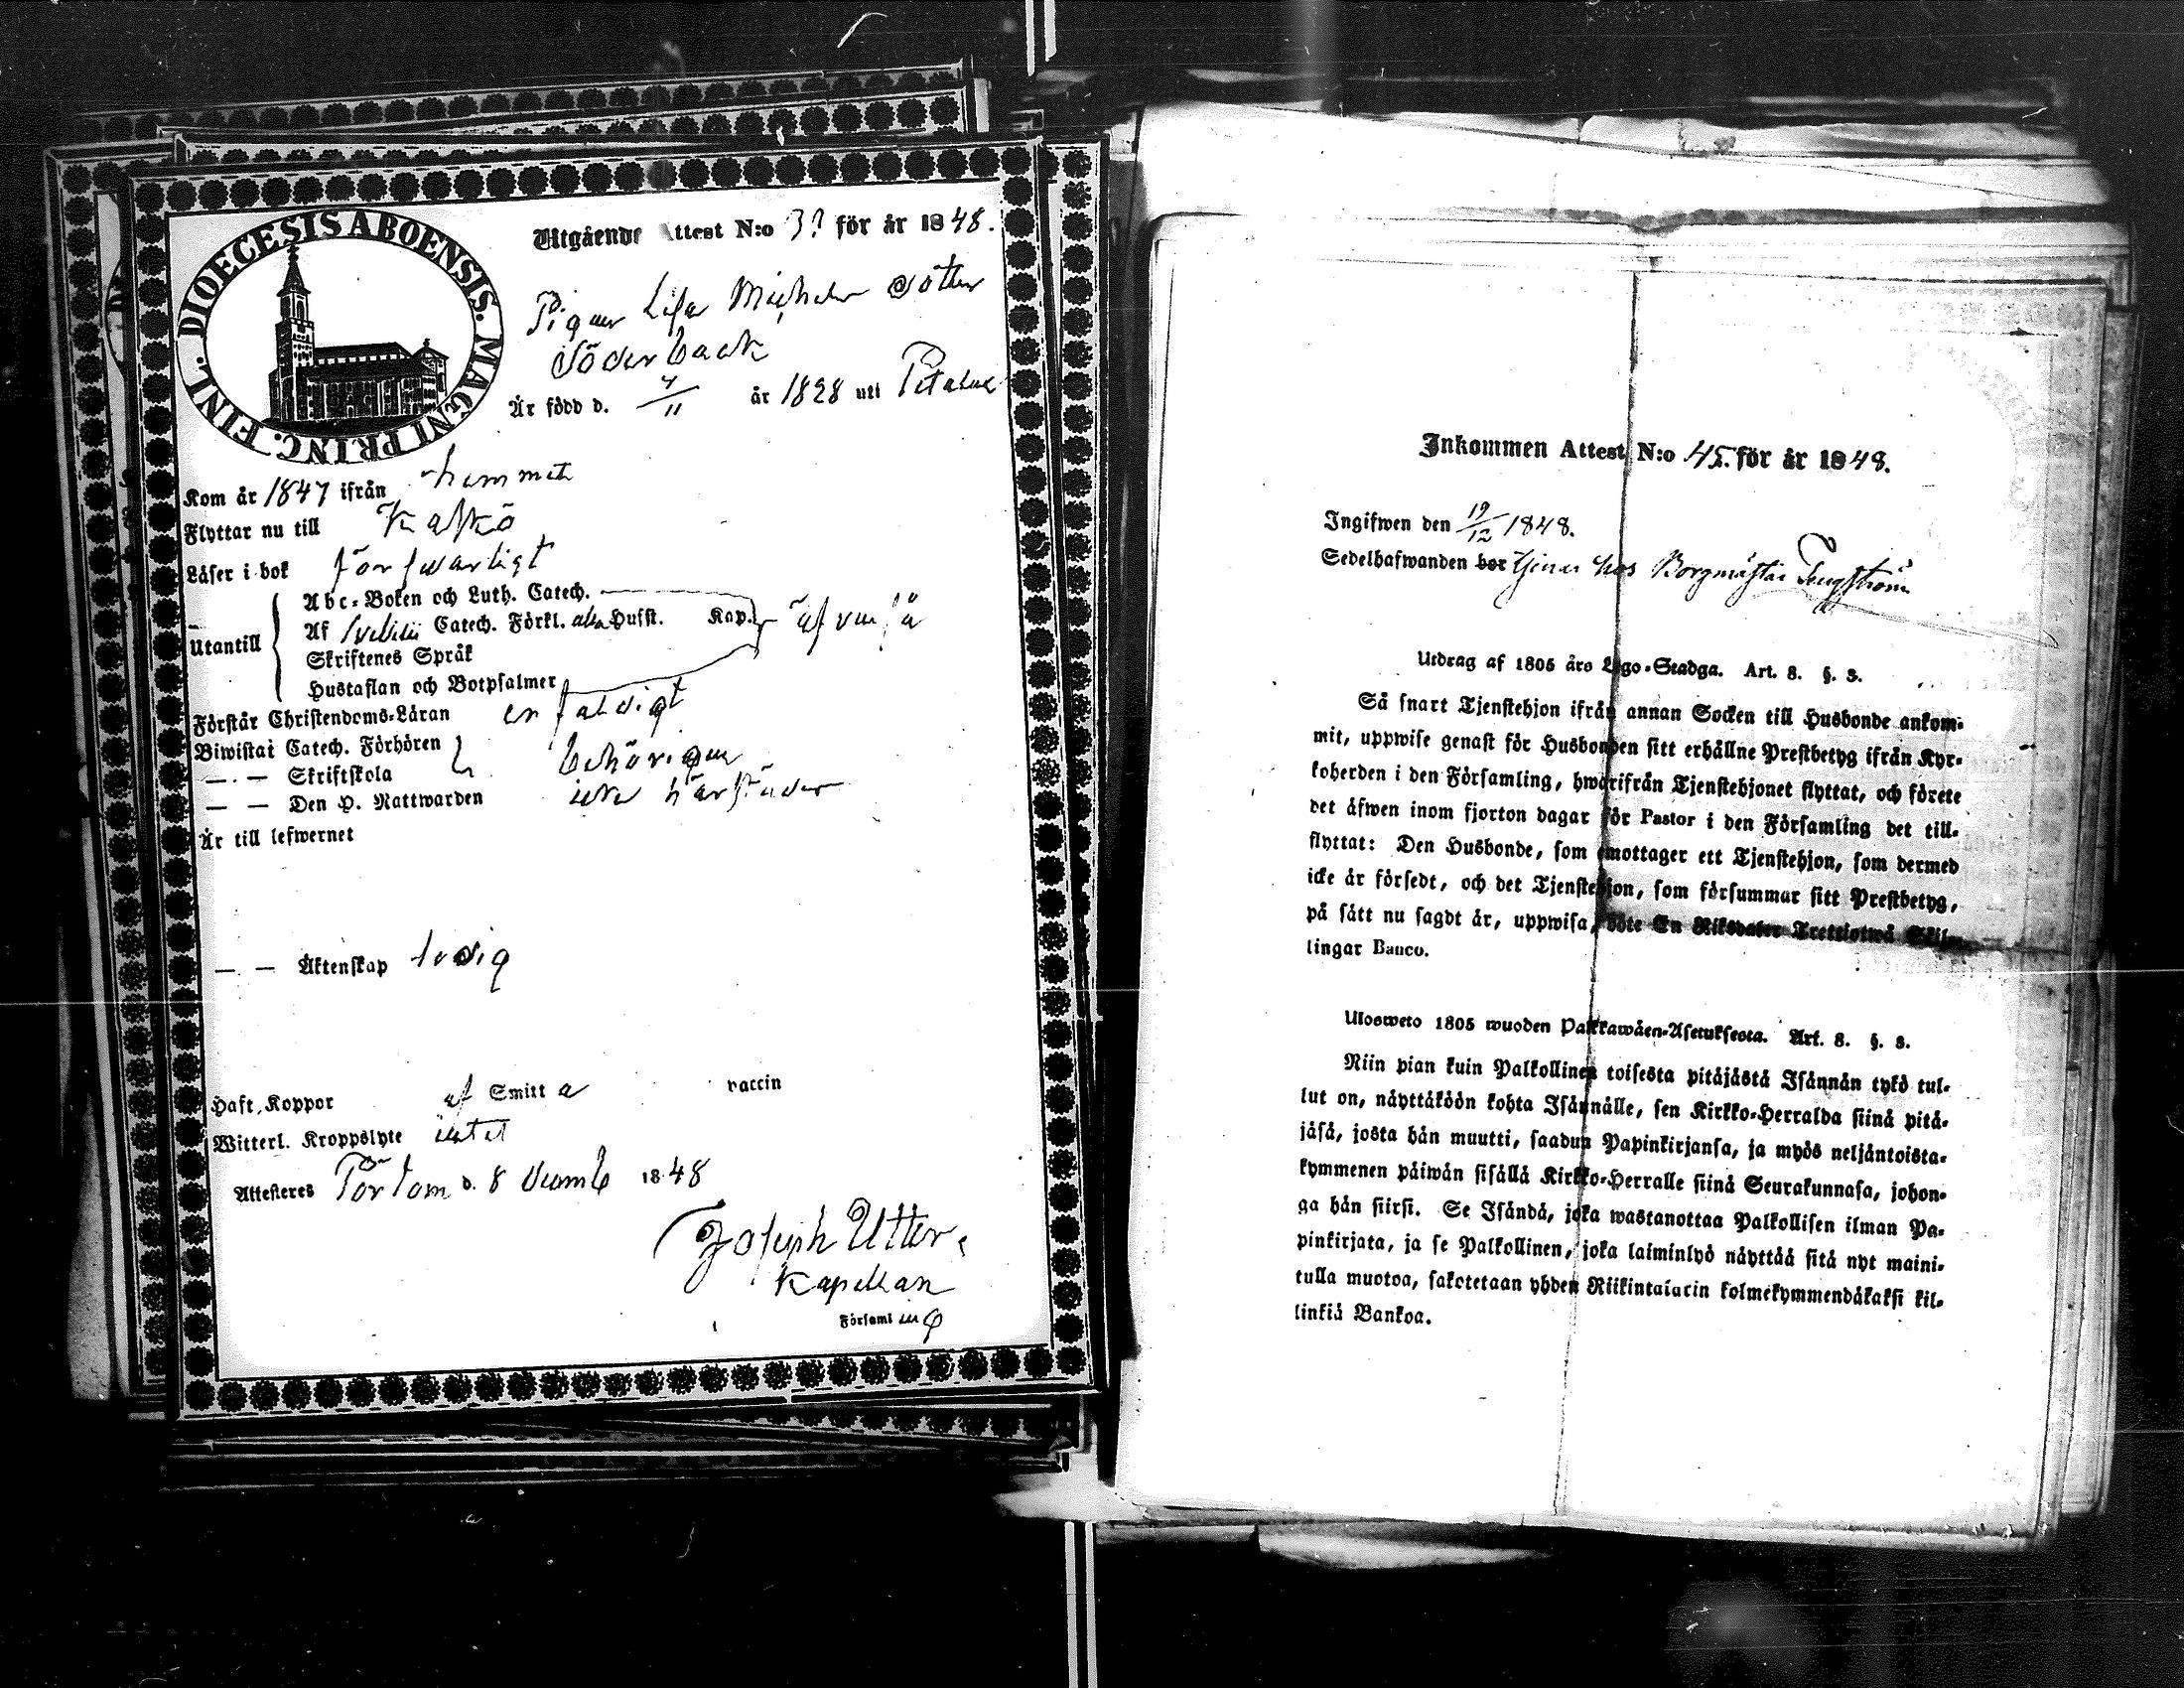 DIOECESIS ABOENSIS. MAGNI PRINC. FINL.
Utgående Attest N:o 3? för år 1848.
Pigan Lisa Michels dotter
Söderback
Är född d. 4/11 år 1828 uti Petalax
Kom år 1847 ifrån hemmet
Flyttar nu till Kaskö
Läser i bok försvarligt
Utantill
Abc-Boken och Luth. Catech.
Af Svebelii Catech. Förkl. Husst. Kap.
Skriftenes Språk
Hustaflan och Botpsalmer
Förstår Christendoms-Läran enfaldigt
Biwistat Catech. Förhören
— · — Skriftskola behörigen
— — Den H. Nattwarden
Är till lefwernet
— — Äktenskap ledig
Haft Koppor af Smitta vaccin
Witterl. Kroppslyte intet
Attesteres Pörtom d. 8 Decemb 1848
Joseph Utter.
Kapellan
Församling
Inkommen Attest N:o 45. för år 1848.
Ingifwen den 19/12 1848.
Sedelhafwanden bor tjenar hos Borgmästar Tengström
Utdrag af 1805 års Lego-Stadga. Art. 8. §. 3.
Så snart Tjenstehjon ifrån annan Socken till Husbonde ankom-
mit, uppwise genast för Husbonden sitt erhållne Prestbetyg ifrån Kyr-
koherden i den Församling, hwarifrån Tjenstehjonet flyttat, och förete
det äfwen inom fjorton dagar för Pastor i den Församling det till-
flyttat: Den Husbonde, som emottager ett Tjenstehjon, som dermed
icke är försedt, och det Tjenstehjon, som försummar sitt Prestbetyg,
på sätt nu sagdt är, uppwisa, böte En Riksdaler Trettiotwå Skil-
lingar Banco.
Ulosweto 1805 wuoden Palkkawäen-Asetuksesta. Art. 8. §. 3.
Niin pian kuin Palkollinen toisesta pitäjästä Isännän tykö tul-
lut on, näyttäköön kohta Isännälle, sen Kirkko-Herralda siinä pitä-
jäsä, josta hän muutti, saadun Papinkirjansa, ja myös neljäntoista-
kymmenen päiwän sisällä Kirkko-Herralle siinä Seurakunnasa, johon-
ga hän siirsi. Se Isändä, joka wastanottaa Palkollisen ilman Pa-
pinkirjata, ja se Palkollinen, joka laiminlyö näyttää sitä nyt maini-
tulla muotoa, sakotetaan yhden Riikintalarin kolmekymmendäkaksi kil-
linkiä Bankoa.